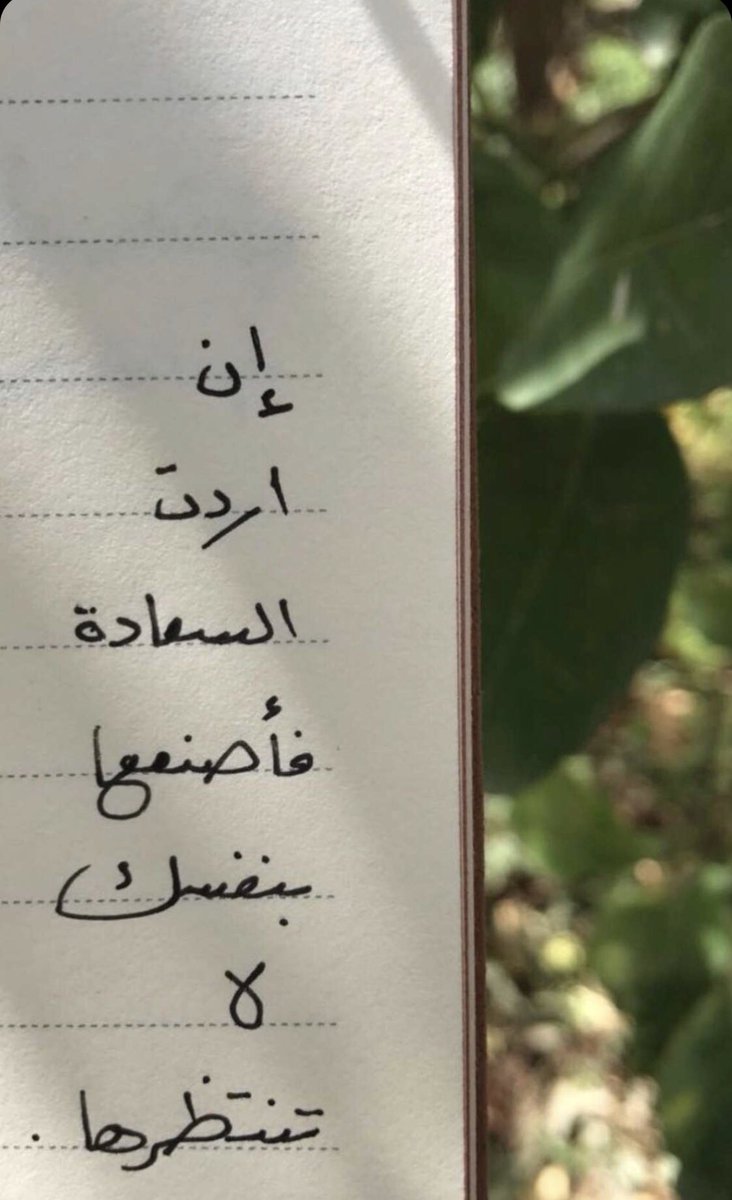 إن
اردت
السعادة
فأصنعها
بنفسك
لا
تنتظرها .